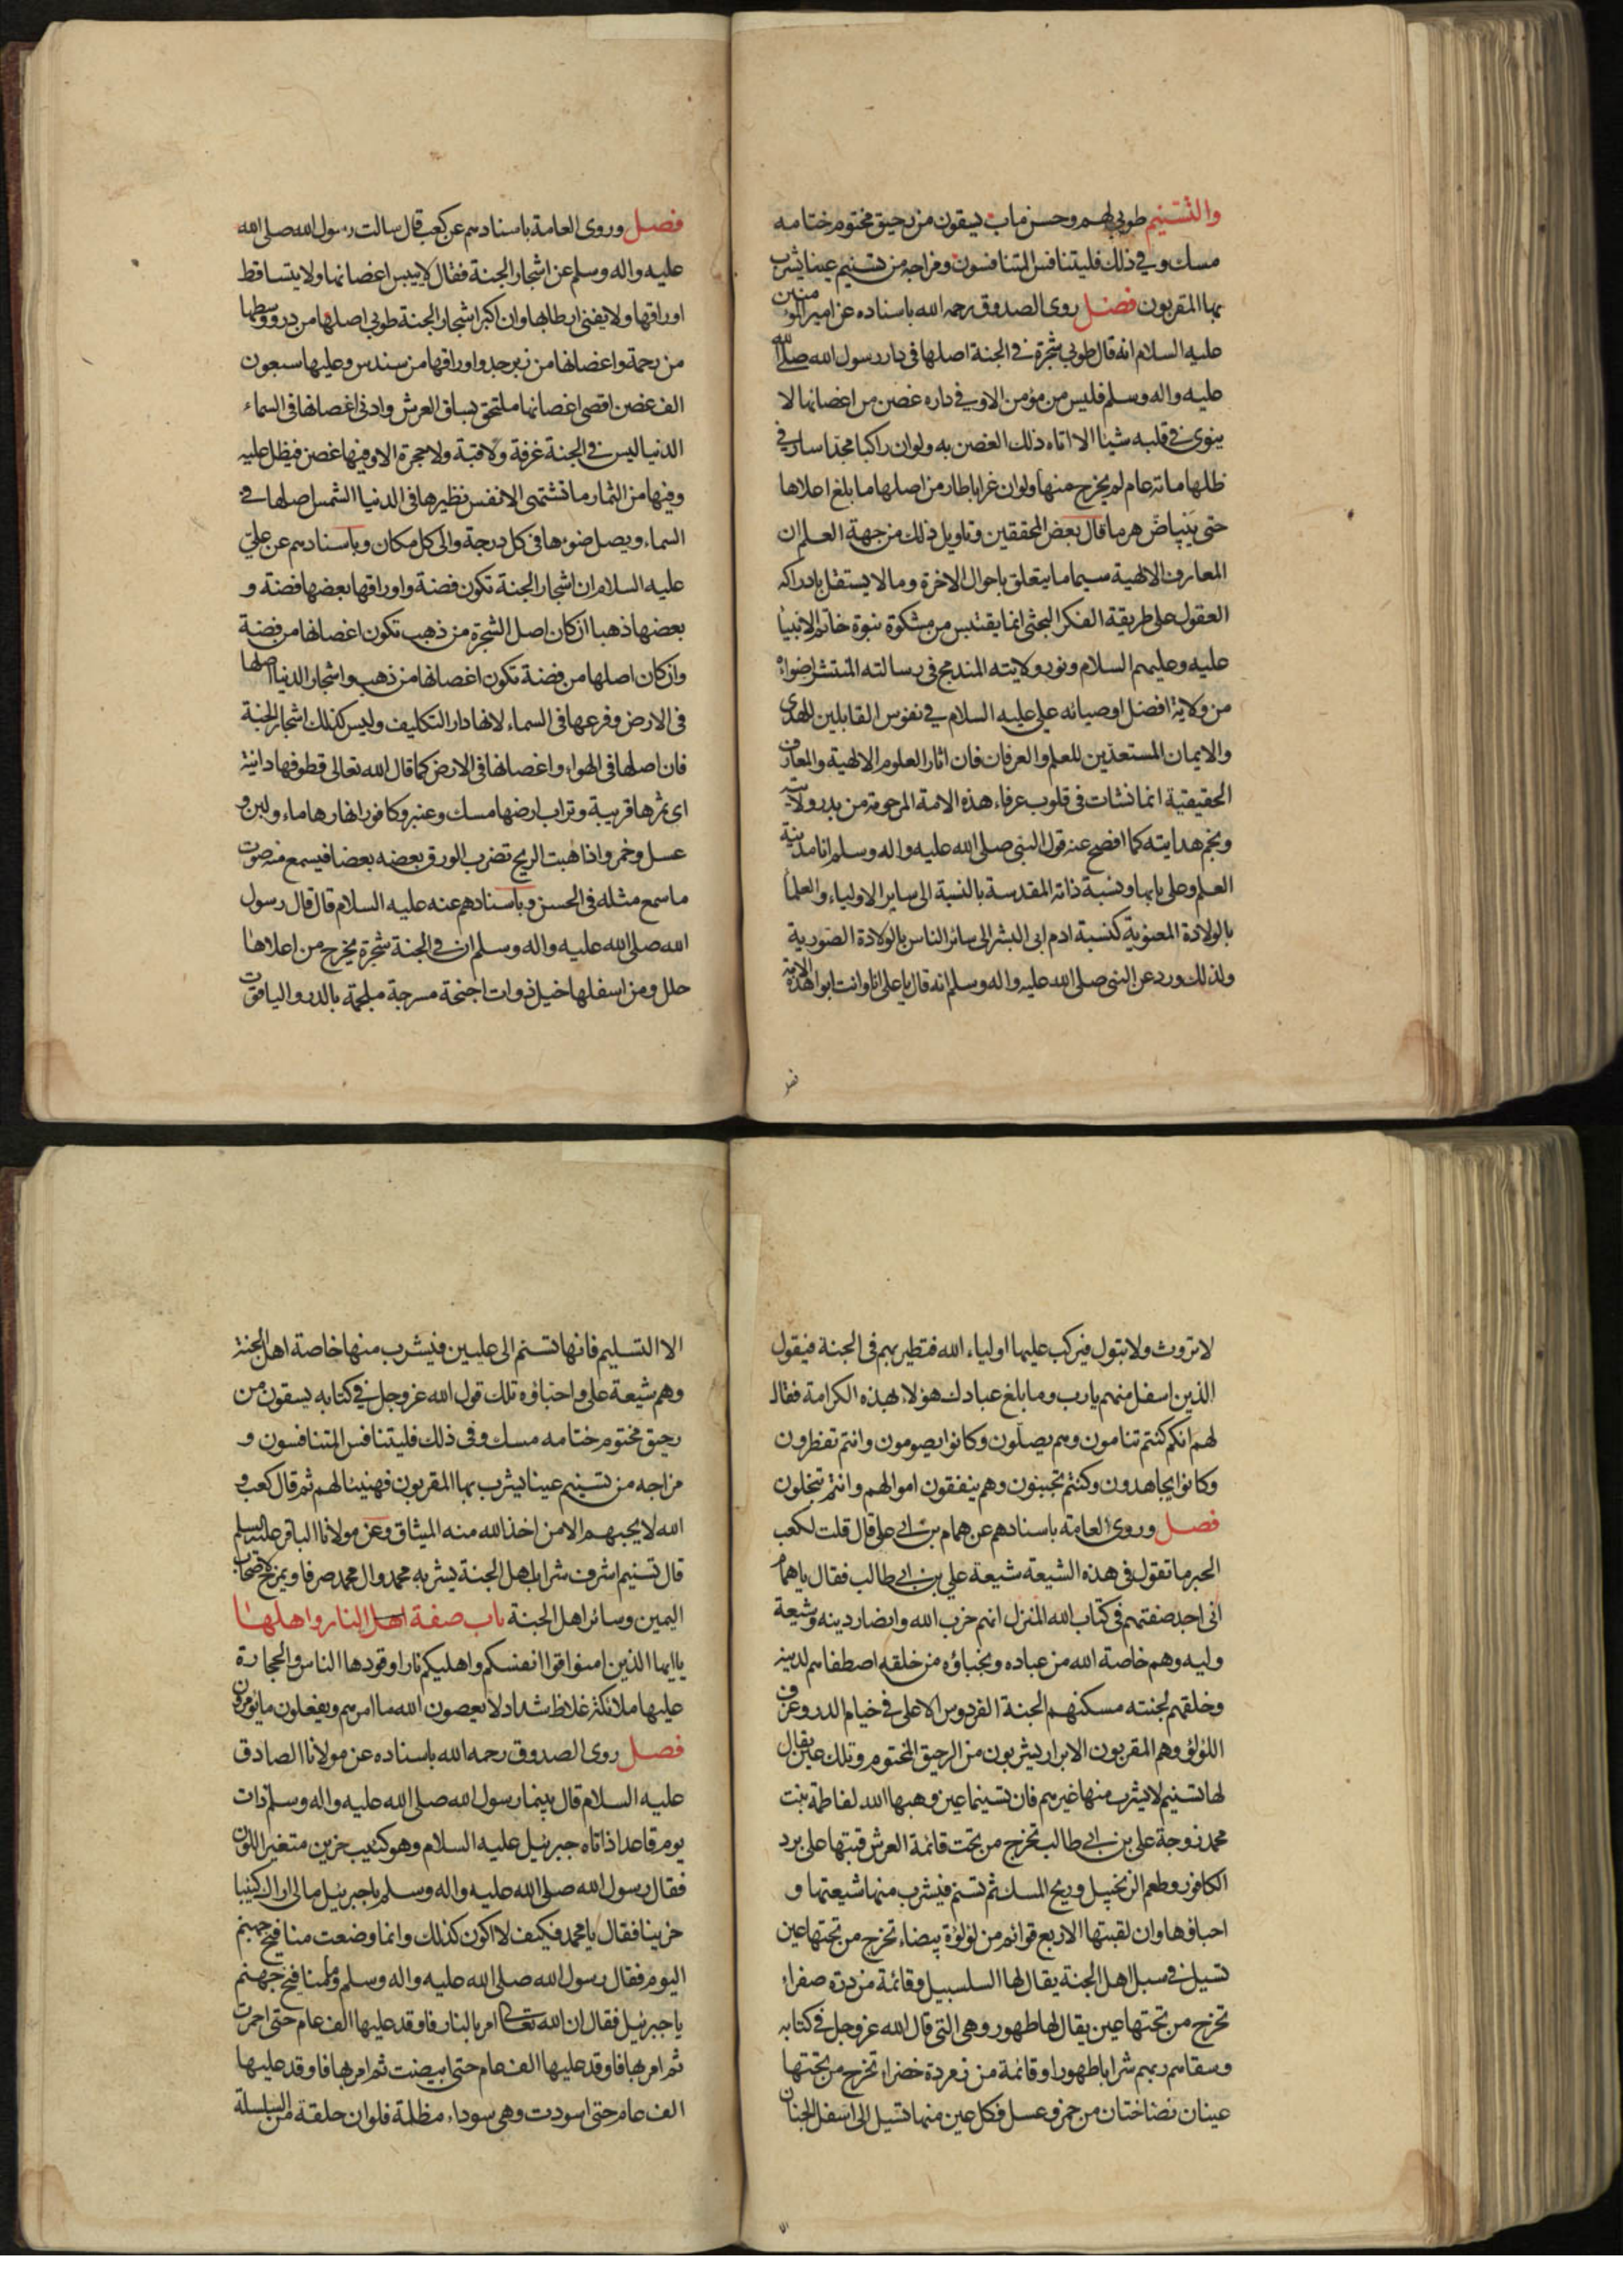 والتسنيم طوبى لهم وحسن ماب يسقون من رحيق مختوم ختامه
مسك وفي ذلك فليتنافس المتنافسون ومزاجه من تسنيم عينا يشرب
بها المقربون فصل روى الصدوق رحمه الله باسناده عن امير المومنين
عليه السلام انه قال طوبى شجرة في الجنة اصلها في دار رسول الله صلى الله
عليه واله وسلم فليس من مؤمن الا وفي داره غصن من اغصانها لا
ينوى في قلبه شيئا الا اتاه ذلك الغصن به ولو ان راكبا مجدا سار في
ظلها مائة عام لم يخرج منها ولو ان غرابا طار من اصلها ما بلغ اعلاها
حتى يبياض هرما قال بعض المحققين وتاويل ذلك من جهة العلم ان
المعارف الالهية سيما ما يتعلق باحوال الاخرة وما لا يستقل بادراكه
العقول على طريقة الفكر البحثى انما يقتبس من مشكوة نبوة خاتم الانبيا
عليه وعليهم السلام ونور ولايته المندمج في رسالته المنتشر اضواؤه
من ولاية افضل اوصيائه على عليه السلام في نفوس القابلين للهدى
والايمان المستعدين للعلم والعرفان فان اثار العلوم الالهية والمعارف
الحقيقية انما نشات في قلوب عرفاء هذه الامة المرحومة من بدر ولايته
ونجم هدايته كما افصح عنه قول النبى صلى الله عليه واله وسلم انا مدينة
العلم وعلى بابها ونسبة ذاته المقدسة بالنسبة الى ساير الاولياء والعلما
بالولادة المعنوية كنسبة ادم ابى البشر الى سائر الناس بالولادة الصورية
ولذلك ورد عن النبى صلى الله عليه واله وسلم انه قال يا على انا وانت ابوا هذه الامة
فصل
فصل وروى العامة باسنادهم عن كعب قال سالت رسول الله صلى الله
عليه واله وسلم عن اشجار الجنة فقال لا ييبس اغصانها ولا يتساقط
اوراقها ولا يفنى ارطابها وان اكبر اشجار الجنة طوبى اصلها من در ووسطها
من رحمة واغصانها من زبرجد واوراقها من سندس وعليها سبعون
الف غصن اقصى اغصانها ملتحق بساق العرش وادنى اغصانها في السماء
الدنيا ليس في الجنة غرفة ولا قبة ولا حجرة الا وفيها غصن فيظل عليه
وفيها من الثمار ما تشتهى الانفس نظيرها في الدنيا الشمس اصلها في
السماء ويصل ضوءها في كل درجة والى كل مكان وباسنادهم عن على
عليه السلام ان اشجار الجنة تكون فضة واوراقها بعضها فضة و
بعضها ذهبا ان كان اصل الشجرة من ذهب تكون اغصانها من فضة
وان كان اصلها من فضة تكون اغصانها من ذهب واشجار الدنيا اصلها
في الارض وفرعها في السماء لانها دار التكليف وليس كذلك اشجار الجنة
فان اصلها في الهواء واغصانها في الارض كما قال الله تعالى قطوفها دانية
اى ثمرها قريبة وتراب ارضها مسك وعنبر وكافور انهارها ماء ولبن و
عسل وخمر واذا هبت الريح تضرب الورق بعضه بعضا فيسمع منه صوت
ما سمع مثله في الحسن وباسنادهم عنه عليه السلام قال قال رسول
الله صلى الله عليه واله وسلم ان في الجنة شجرة يخرج من اعلاها
حلل ومن اسفلها خيل ذوات اجنحة مسرجة ملجمة بالدر والياقوت
لا تروث ولا تبول فيركب عليها اولياء الله فتطير بهم في الجنة فيقول
الذين اسفل منهم يا رب وما بلغ عبادك هؤلاء بهذه الكرامة فقال
لهم انكم كنتم تنامون وهم يصلون وكانوا يصومون وانتم تفطرون
وكانوا يجاهدون وكنتم تجبنون وهم ينفقون اموالهم وانتم تبخلون
فصل وروى العامة باسنادهم عن همام بن ابي على قال قلت لكعب
الحبر ما تقول في هذه الشيعة شيعة علي بن ابي طالب فقال يا همام
انى اجد صفتهم في كتاب الله المنزل انهم حزب الله وانصار دينه وشيعة
وليه وهم خاصة الله من عباده ونجباؤه من خلقه اصطفاهم لدينه
وخلقهم لجنته مسكنهم الجنة الفردوس الاعلى في خيام الدر وغرف
اللؤلؤ وهم المقربون الابرار يشربون من الرحيق المختوم وتلك عين يقال
لها تسنيم لا يشرب منها غيرهم فان تسنيما عين وهبها الله لفاطمة بنت
محمد زوجة على بن ابي طالب تخرج من تحت قائمة العرش قبتها على برد
الكافور وطعم الزنجبيل وريح المسك ثم تسنم فيشرب منها شيعتها و
احباؤها وان لقبتها الاربع قوائم من لؤلؤة بيضاء تخرج من تحتها عين
تسيل في سبل اهل الجنة يقال لها السلسبيل وقائمة من درة صفراء
تخرج من تحتها عين يقال لها طهور وهي التي قال الله عز وجل في كتابه
وسقاهم ربهم شرابا طهورا وقائمة من زمردة خضراء تخرج من تحتها
عينان نضاختان من خمر وعسل فكل عين منها تسيل الى اسفل الجنان
الا
الا التسليم فانها تسنم الى عليين فيشرب منها خاصة اهل الجنة
وهم شيعة على واحباؤه تلك قول الله عز وجل في كتابه يسقون من
رحيق مختوم ختامه مسك وفي ذلك فليتنافس المتنافسون و
مزاجه من تسنيم عينا يشرب بها المقربون فهنيئا لهم ثم قال كعب و
الله لا يحبهم الا من اخذ الله منه الميثاق وعن مولانا الباقر عليه السلم
قال تسنيم اشرف شراب اهل الجنة يشربه محمد وال محمد صرفا ويمزج لاصحاب
اليمين وسائر اهل الجنة باب صفة اهل النار واهلها
يا ايها الذين امنوا قوا انفسكم واهليكم نارا وقودها الناس والحجارة
عليها ملائكة غلاظ شداد لا يعصون الله ما امرهم ويفعلون ما يؤمرون
فصل روى الصدوق رحمه الله باسناده عن مولانا الصادق
عليه السلام قال بينما رسول الله صلى الله عليه واله وسلم ذات
يوم قاعدا اذ اتاه جبرئيل عليه السلام وهو كئيب حزين متغير اللون
فقال رسول الله صلى الله عليه واله وسلم يا جبرئيل مالى اراك كئيبا
حزينا فقال يا محمد فكيف لا اكون كذلك وانما وضعت منافيخ جهنم
اليوم فقال رسول الله صلى الله عليه واله وسلم وما منافيخ جهنم
يا جبرئيل فقال ان الله تعالى امر بالنار فاوقد عليها الف عام حتى احمرت
ثم امر بها فاوقد عليها الف عام حتى ابيضت ثم امر بها فاوقد عليها
الف عام حتى اسودت وهي سوداء مظلمة فلو ان حلقة من السلسلة